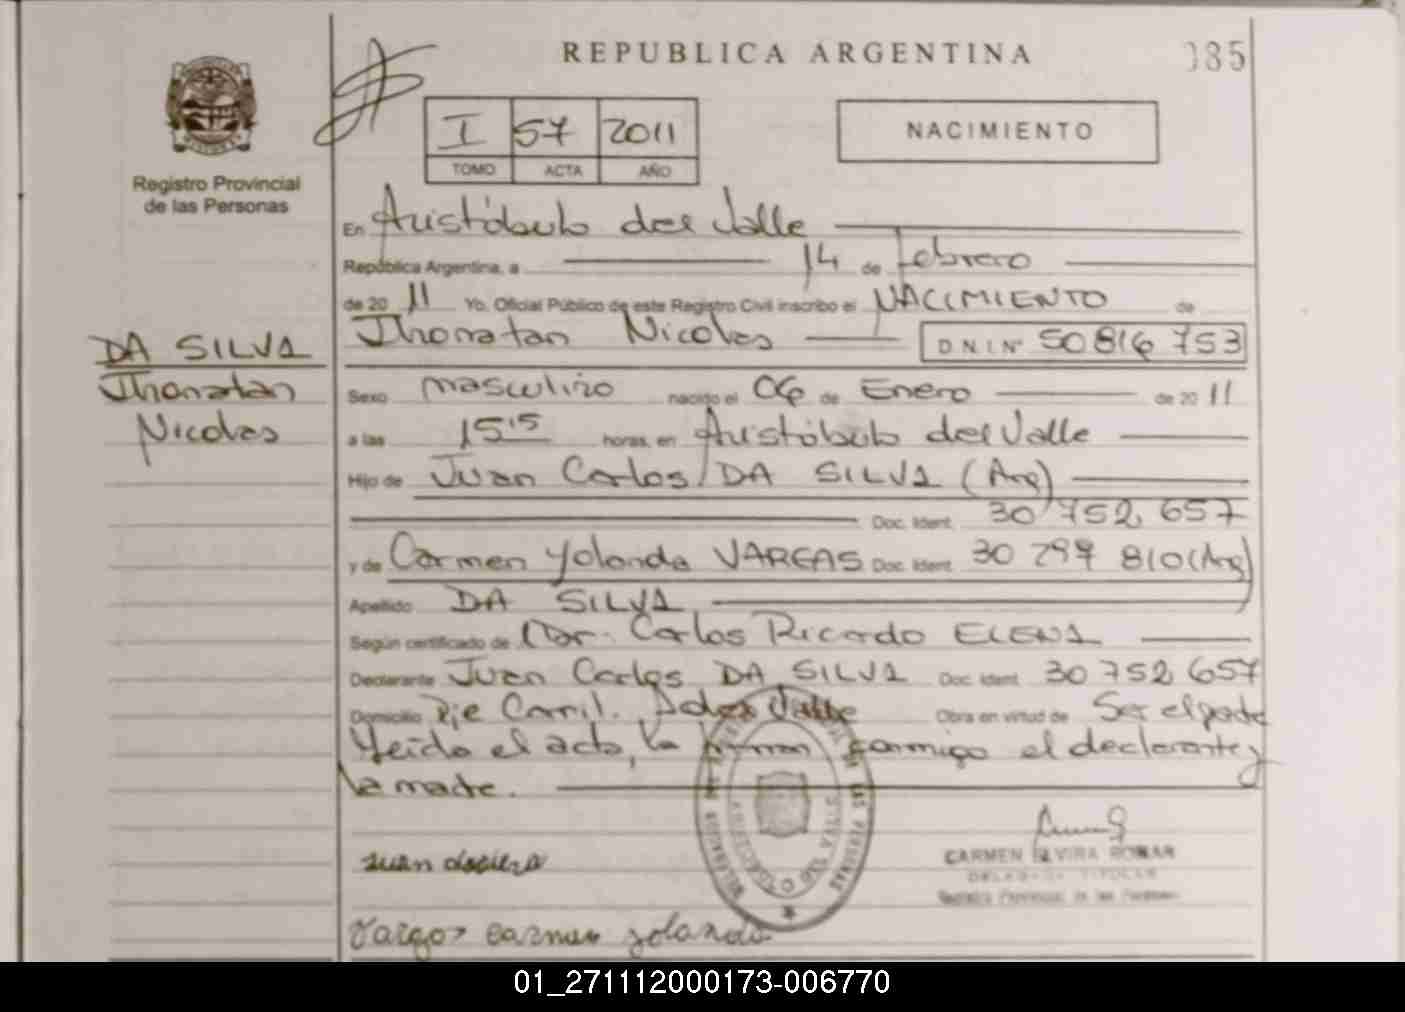 REPUBLICA ARGENTINA
085
Registro Provincial
de las Personas
I 57 2011
TOMO ACTA AÑO
NACIMIENTO
En Aristóbulo del Valle
República Argentina, a 14 de febrero
de 20 11 Yo. Oficial Público de este Registro Civil inscribo el NACIMIENTO de
Jhonatan Nicolas D N I Nº 50 816 753
DA SILVA
Jhonatan
Nicolas
Sexo masculino nacido el 06 de Enero de 20 11
a las 15 15 horas, en Aristóbulo del Valle
Hijo de Juan Carlos DA SILVA (Arg)
Doc. Ident. 30 752 657
y de Carmen Yolanda VARGAS Doc. Ident. 30 297 810 (Arg)
Apellido DA SILVA
Según certificado de Dr. Carlos Ricardo ELENA
Declarante Juan Carlos DA SILVA Doc. Ident. 30 752 657
Domicilio Pje Carril. A del Valle Obra en virtud de Ser el padre
Leída el acta, la firman conmigo el declarante y
la madre.
CARMEN ELVIRA ROMAN
DELEGADA TITULAR
Registro Provincial de las Personas
Juan dasilva
Vargas carmen yolanda
01_271112000173-006770